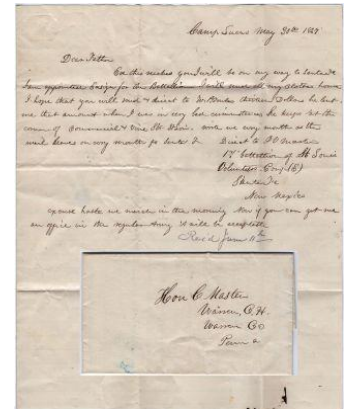 Camp Lucas May 30th 1847
Dear Father
Ere this reaches you I will be on my way to Santa Fe
I am appointed Ensign for the Battalion I will
I hope that you will send & direct to thirteen Dollars he lent
me that amount when I was in very bad circumstances he keeps at the
corner of Commercial & Vine St Louis. write me every month as the
mail leaves on every month for Santa Fe Direct to
1st battallion of St Louis
Volunteers Comp (E)
Santa Fe
New Mexico
excuse haste we march in the morning Now if you can get me
an office in the regular Army it will be acceptable
Rec'd June 11th
Hon C Masten
Warren C. H.
Warren Co
Penn a